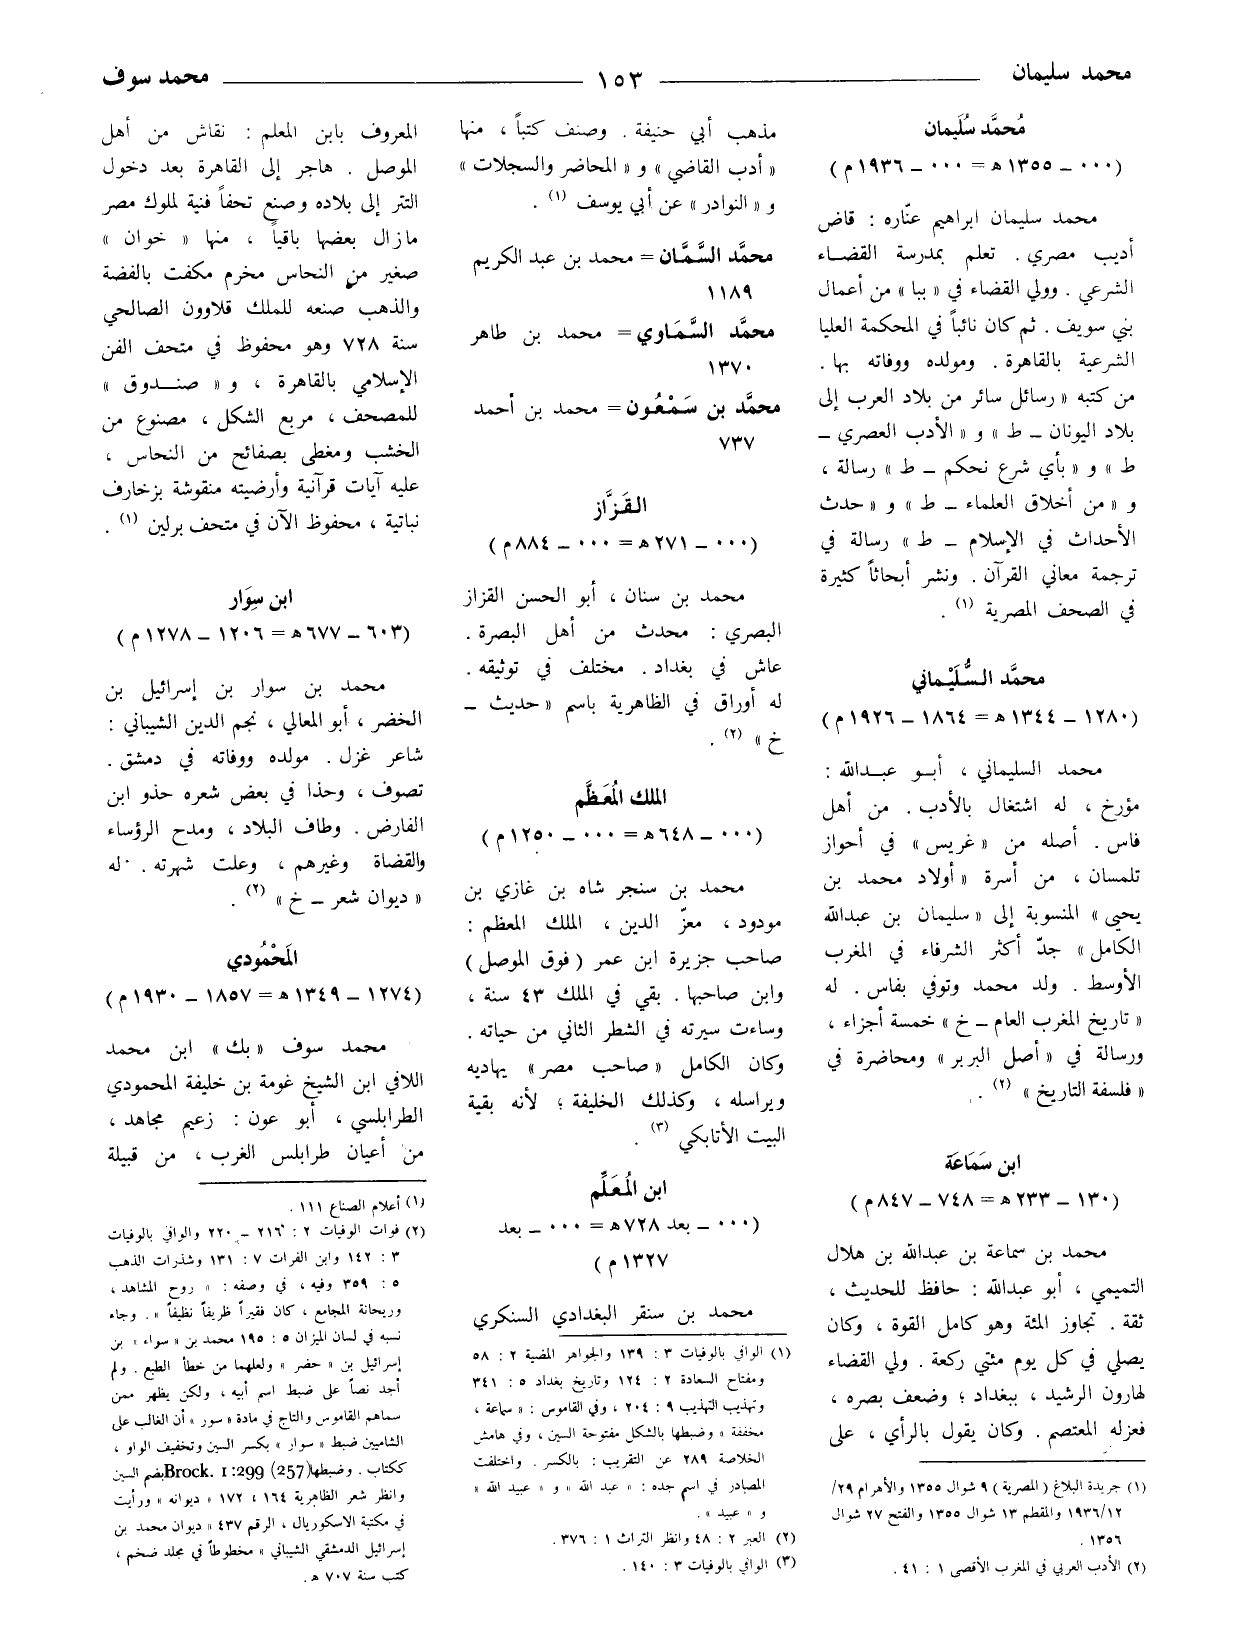 محمد سليمان ١٥٣ محمد سوف
مُحمَّد سُلَيمان
(٠٠٠ – ١٣٥٥ هـ = ٠٠٠ – ١٩٣٦ م)
محمد سليمان ابراهيم عنّاره : قاض
أديب مصري . تعلم بمدرسة القضاء
الشرعي . وولي القضاء في « ببا » من أعمال
بني سويف . ثم كان نائباً في المحكمة العليا
الشرعية بالقاهرة . ومولده ووفاته بها .
من كتبه « رسائل سائر من بلاد العرب إلى
بلاد اليونان – ط » و « الأدب العصري –
ط » و « بأي شرع نحكم – ط » رسالة ،
و « من أخلاق العلماء – ط » و « حدث
الأحداث في الإسلام – ط » رسالة في
ترجمة معاني القرآن . ونشر أبحاثاً كثيرة
في الصحف المصرية (١) .
محمَّد السُّلَيْماني
(١٢٨٠ – ١٣٤٤ هـ = ١٨٦٤ – ١٩٢٦ م)
محمد السليماني ، أبو عبدالله :
مؤرخ ، له اشتغال بالأدب . من أهل
فاس . أصله من « غريس » في أحواز
تلمسان ، من أسرة « أولاد محمد بن
يحيى » المنسوبة إلى « سليمان بن عبدالله
الكامل » جدّ أكثر الشرفاء في المغرب
الأوسط . ولد محمد وتوفي بفاس . له
« تاريخ المغرب العام – خ » خمسة أجزاء ،
ورسالة في « أصل البربر » ومحاضرة في
« فلسفة التاريخ » (٢) .
ابن سَمَاعَة
(١٣٠ – ٢٣٣ هـ = ٧٤٨ – ٨٤٧ م)
محمد بن سماعة بن عبدالله بن هلال
التميمي ، أبو عبدالله : حافظ للحديث ،
ثقة . تجاوز المئة وهو كامل القوة ، وكان
يصلي في كل يوم مئتي ركعة . ولي القضاء
لهارون الرشيد ، ببغداد ؛ وضعف بصره ،
فعزله المعتصم . وكان يقول بالرأي ، على
(١) جريدة البلاغ ( المصرية ) ٩ شوال ١٣٥٥ والأهرام ٢٩/
١٩٣٦/١٢ والمقطم ١٣ شوال ١٣٥٥ والفتح ٢٧ شوال
١٣٥٦ .
(٢) الأدب العربي في المغرب الأقصى ١ : ٤١ .
مذهب أبي حنيفة . وصنف كتباً ، منها
« أدب القاضي » و « المحاضر والسجلات »
و « النوادر » عن أبي يوسف (١) .
محمَّد السَّمَّان = محمد بن عبد الكريم
١١٨٩
محمَّد السَّمَاوي = محمد بن طاهر
١٣٧٠
محمَّد بن سَمْعُون = محمد بن أحمد
٧٣٧
القَزَّاز
(٠٠٠ – ٢٧١ هـ = ٠٠٠ – ٨٨٤ م)
محمد بن سنان ، أبو الحسن القزاز
البصري : محدث من أهل البصرة .
عاش في بغداد . مختلف في توثيقه .
له أوراق في الظاهرية باسم « حديث –
خ » (٢) .
الملك المُعَظَّم
(٠٠٠ – ٦٤٨ هـ = ٠٠٠ – ١٢٥٠ م)
محمد بن سنجر شاه بن غازي بن
مودود ، معزّ الدين ، الملك المعظم :
صاحب جزيرة ابن عمر ( فوق الموصل )
وابن صاحبها . بقي في الملك ٤٣ سنة ،
وساءت سيرته في الشطر الثاني من حياته .
وكان الكامل « صاحب مصر » يهاديه
ويراسله ، وكذلك الخليفة ؛ لأنه بقية
البيت الأتابكي (٣) .
ابن المُعَلِّم
(٠٠٠ – بعد ٧٢٨ هـ = ٠٠٠ – بعد
١٣٢٧ م )
محمد بن سنقر البغدادي السنكري
(١) الوافي بالوفيات ٣ : ١٣٩ والجواهر المضية ٢ : ٥٨
ومفتاح السعادة ٢ : ١٢٤ وتاريخ بغداد ٥ : ٣٤١
وتهذيب التهذيب ٩ : ٢٠٤ ، وفي القاموس : « سماعة ،
مخففة » وضبطها بالشكل مفتوحة السين ، وفي هامش
الخلاصة ٢٨٩ عن التقريب : بالكسر . واختلفت
المصادر في اسم جده : « عبد الله » و « عبيد الله »
و « عبيد » .
(٢) العبر ٢ : ٤٨ وانظر التراث ١ : ٣٧٦ .
(٣) الوافي بالوفيات ٣ : ١٤٠ .
المعروف بابن المعلم : نقاش من أهل
الموصل . هاجر إلى القاهرة بعد دخول
التتر إلى بلاده وصنع تحفاً فنية لملوك مصر
مازال بعضها باقياً ، منها « خوان »
صغير من النحاس مخرم مكفت بالفضة
والذهب صنعه للملك قلاوون الصالحي
سنة ٧٢٨ وهو محفوظ في متحف الفن
الإسلامي بالقاهرة ، و « صندوق »
للمصحف ، مربع الشكل ، مصنوع من
الخشب ومغطى بصفائح من النحاس ،
عليه آيات قرآنية وأرضيته منقوشة بزخارف
نباتية ، محفوظ الآن في متحف برلين (١) .
ابن سِوَار
(٦٠٣ – ٦٧٧ هـ = ١٢٠٦ – ١٢٧٨ م)
محمد بن سوار بن إسرائيل بن
الخضر ، أبو المعالي ، نجم الدين الشيباني :
شاعر غزل . مولده ووفاته في دمشق .
تصوف ، وحذا في بعض شعره حذو ابن
الفارض . وطاف البلاد ، ومدح الرؤساء
والقضاة وغيرهم ، وعلت شهرته . له
« ديوان شعر – خ » (٢) .
المَحْمُودي
(١٢٧٤ – ١٣٤٩ هـ = ١٨٥٧ – ١٩٣٠ م)
محمد سوف « بك » ابن محمد
اللافي ابن الشيخ غومة بن خليفة المحمودي
الطرابلسي ، أبو عون : زعيم مجاهد ،
من أعيان طرابلس الغرب ، من قبيلة
(١) أعلام الصناع ١١١ .
(٢) فوات الوفيات ٢ : ٢١٦ – ٢٢٠ والوافي بالوفيات
٣ : ١٤٢ وابن الفرات ٧ : ١٣١ وشذرات الذهب
٥ : ٣٥٩ وفيه ، في وصفه : « روح المشاهد ،
وريحانة المجامع ، كان فقيراً ظريفاً نظيفاً » . وجاء
نسبه في لسان الميزان ٥ : ١٩٥ محمد بن « سواء » بن
إسرائيل بن « حضر » ولعلهما من خطأ الطبع . ولم
أجد نصاً على ضبط اسم أبيه ، ولكن يظهر ممن
سماهم القاموس والتاج في مادة « سور » أن الغالب على
الشاميين ضبط « سوار » بكسر السين وتخفيف الواو ،
ككتاب . وضبطها Brock. I :299 (257) بضم السين
وانظر شعر الظاهرية ١٦٤ ، ١٧٢ « ديوانه » ورأيت
في مكتبة الاسكوريال ، الرقم ٤٣٧ « ديوان محمد بن
إسرائيل الدمشقي الشيباني » مخطوطاً في مجلد ضخم ،
كتب سنة ٧٠٧ هـ .